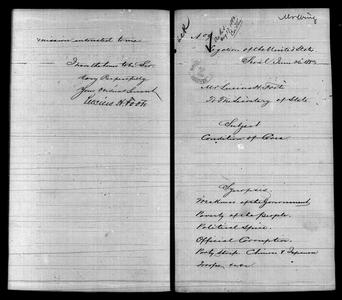 mission intrusted to me
I have the honor to be Sir
Very Respectfully
Your Obedient Servant
Lucius H. Foote
No
Legation of the United States
Seoul June
Mr Lucius H. Foote
To The Secretary of State
Subject
Condition of Corea
Synopsis
Weakness of the Government
Poverty of the People.
Political
Official Corruption.
Chinese & Japanese
Troops